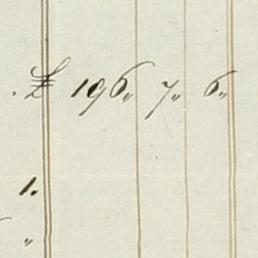 . £ 196〃 7〃 6〃
1.
〃